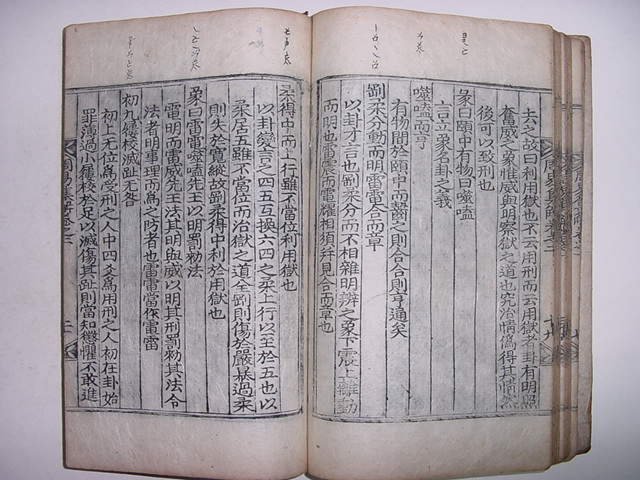 去之故曰利用獄也不云用刑而云用獄者卦有明照
奮威之象惟威與明察獄之道也究治情僞得其情然
後可以致刑也
彖曰頤中有物曰噬嗑
言立象名卦之義
噬嗑而亨
有物間於頤中而齧之則合合則亨通矣
剛柔分動而明雷電合而章
以卦才言也剛柔分而不相雜明辨之象下震上離動
而明也雷震而電燿相須幷見合而章也
柔得中而上行雖不當位利用獄也
以卦變言之四五互換六四之柔上行以至於五也以
柔居五雖不當位而治獄之道全剛則傷於嚴暴過柔
則失於寬縱故剛柔得中利於用獄也
象曰雷電噬嗑先王以明罰勑法
電明而雷威先王法其明與威以明其刑罰勑其法令
法者明事理而爲之防者也雷電當作電雷
初九屨校滅趾无咎
初上无位爲受刑之人中四爻爲用刑之人初在卦始
罪薄過小屨校於足以滅傷其趾則當知懲懼不敢進